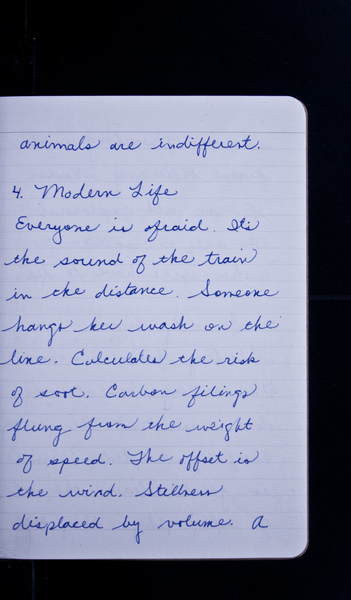 animals are indifferent.
4. Modern Life
Everyone is afraid. It's
the sound of the train
in the distance. Someone
hangs her wash on the
line. Calculates the risk
of soot. Carbon filings
flung from the weight
of speed. The offset is
the wind. Stillness
displaced by volume. A